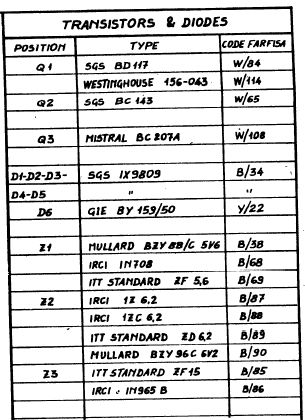 TRANSISTORS & DIODES
POSITION TYPE CODE FARFISA
Q1 SGS BD 117 W/84
WESTINGHOUSE 156-043 W/114
Q2 SGS BC 143 W/65
Q3 MISTRAL BC 207A W/108
D1-D2-D3- SGS 1X9809 B/34
D4-D5 " "
D6 GIE BY 159/50 Y/22
Z1 MULLARD BZY 88/C 5V6 B/38
IRCI 1N708 B/68
ITT STANDARD ZF 5,6 B/69
Z2 IRCI 1Z 6,2 B/87
IRCI 1ZC 6,2 B/88
ITT STANDARD ZD 6,2 B/89
MULLARD BZY 96C 6V2 B/90
Z3 ITT STANDARD ZF 15 B/85
IRCI 1N965 B B/86